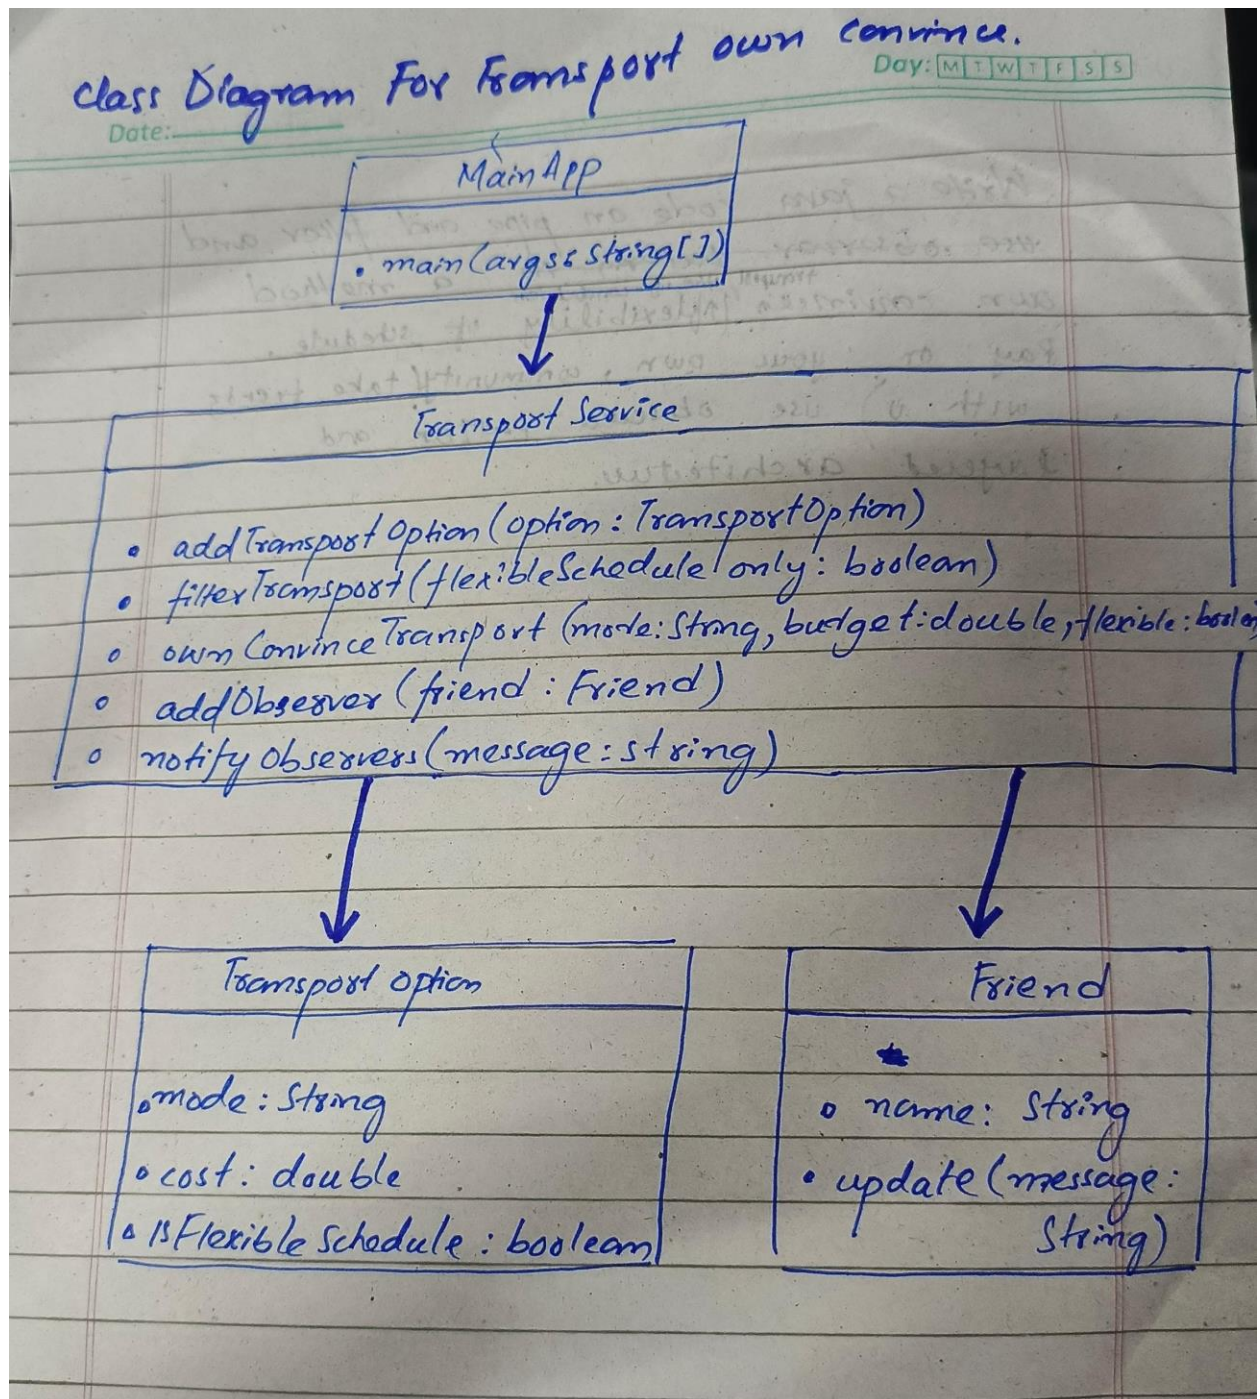 Class Diagram For Transport own Convince.
Day: M T W T F S S
Date:
MainApp
• main(args: String[])
Transport Service
• addTransport Option (option: TransportOption)
• filterTransport (flexibleSchedule only: boolean)
• own Convince Transport (mode: String, budget: double, flexible: boolean
• addObserver (friend: Friend)
• notify Observers (message: string)
Transport option
• mode: String
• cost: double
• isFlexible Schedule: boolean
Friend
• name: String
• update (message:
String)